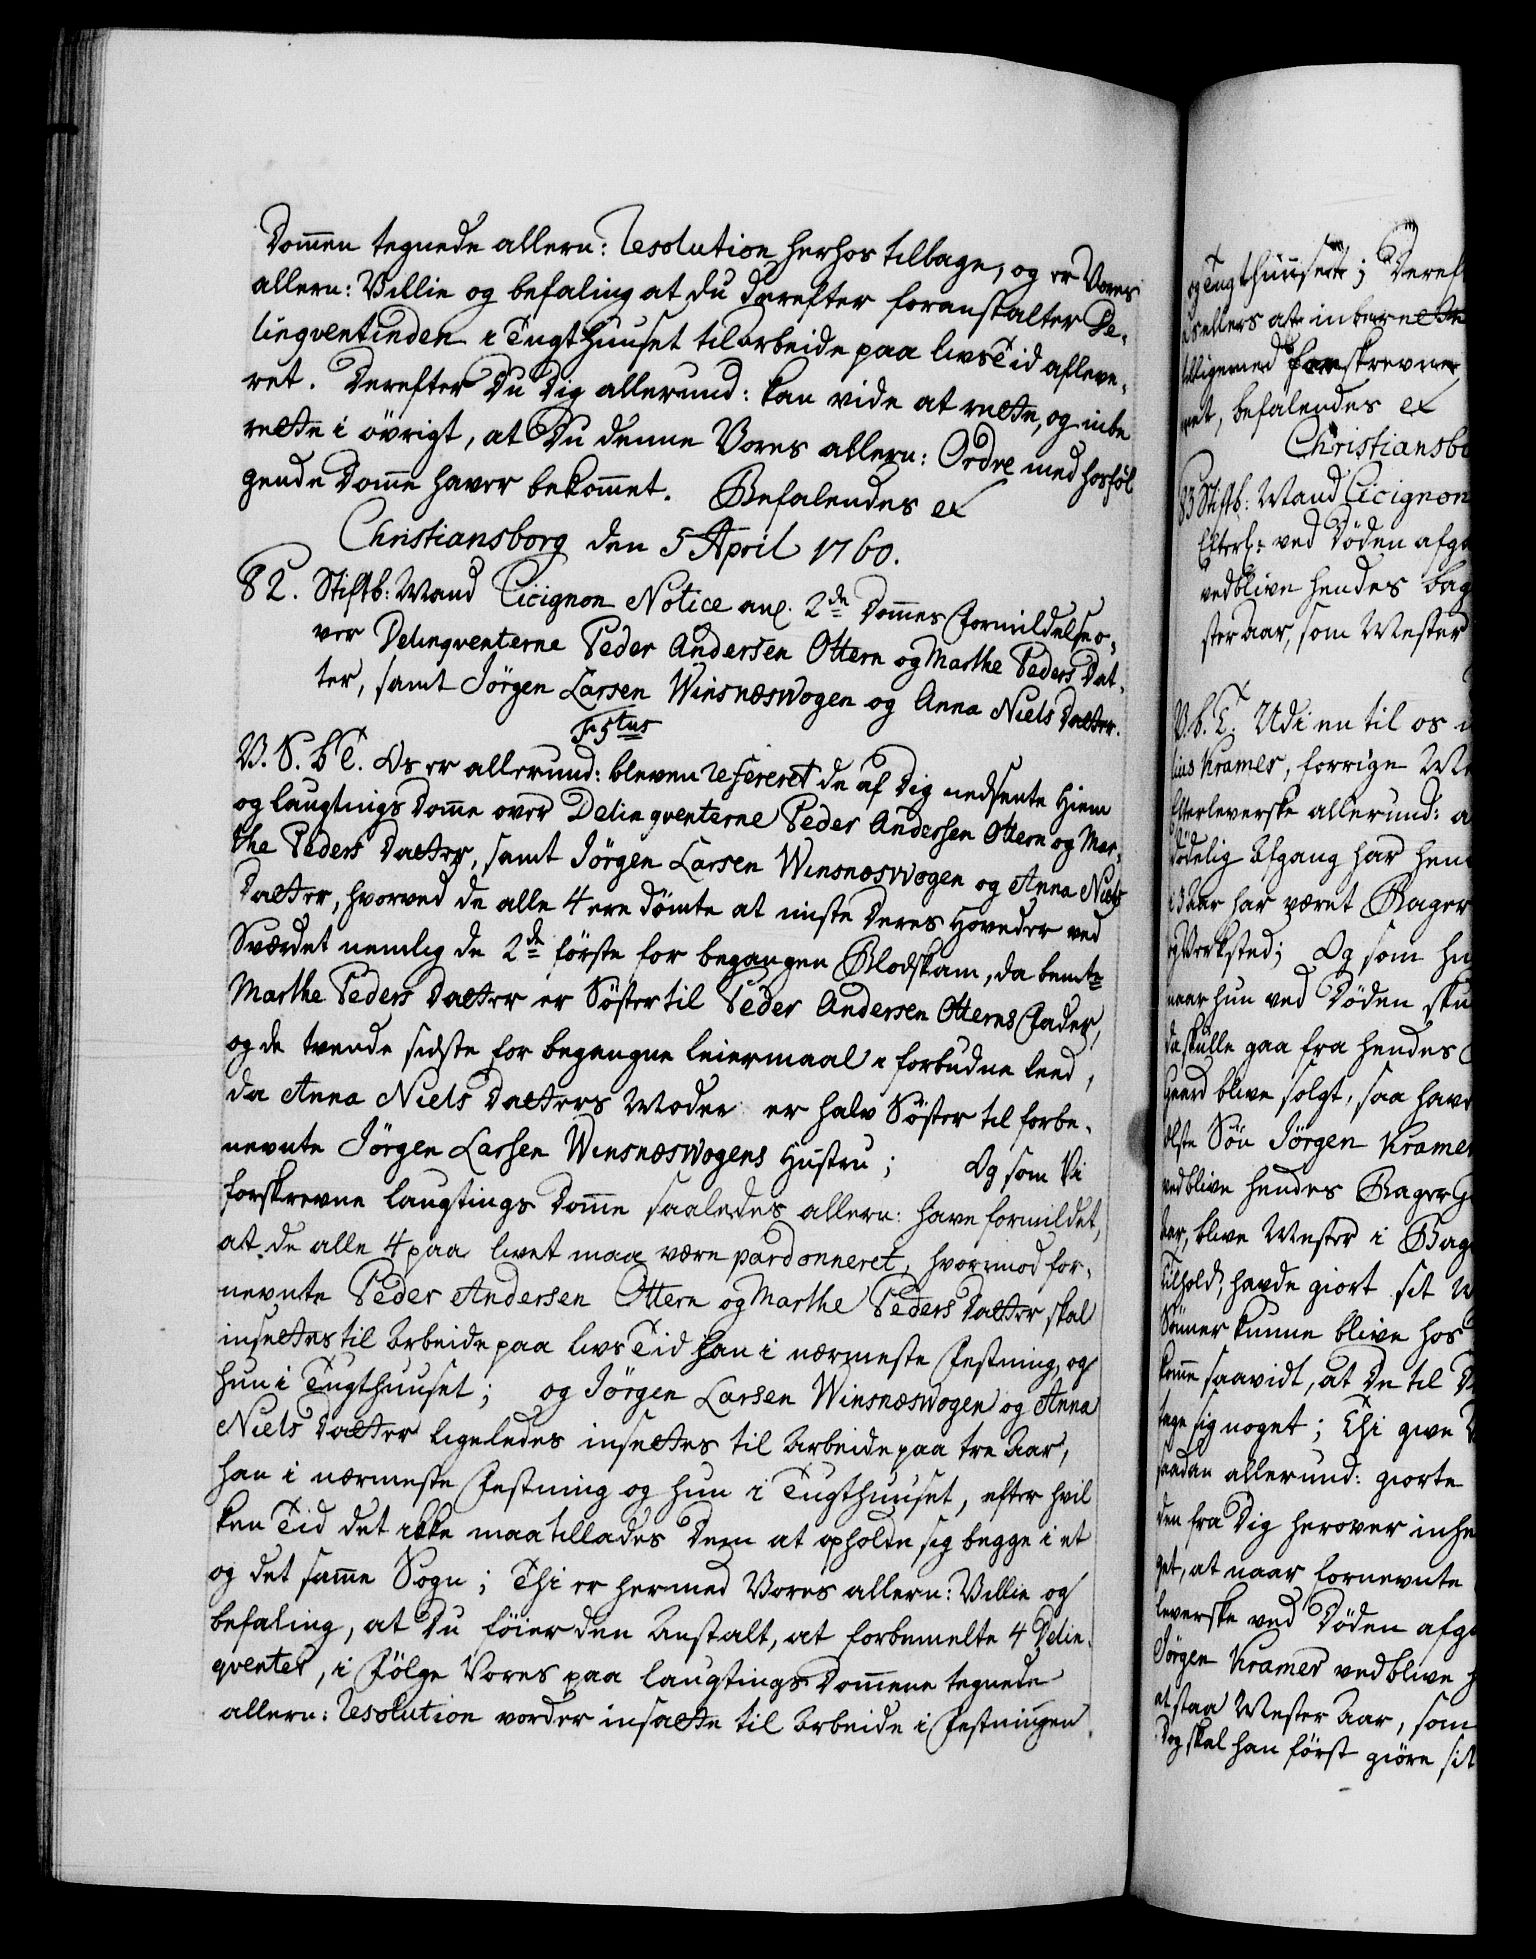 Dom̄en tegnede allern: Resolution herhos tilbage, og er Vores
allern: Villie og befaling at du derefter foranstalter De-
linqventinden i Tugthuuset til arbeide paa livs Tid afleve-
ret. Derefter Du Dig allerund: kan vide at rette, og inbe
rette i övrigt, at Du denne Vores allern: Ordre med hosföl
gende Dom̄e haver bekom̄et. Befalendes etc
Christiansborg den 5 April 1760.
82. Stiftb: Mand Cicignon Notice anl. 2de Dom̄es Formildelse o-
ver Delinqventerne Peder Andersen Ottern og Marthe Peders Dat-
ter, samt Jörgen Larsen Winsnæsvogen og Anna Niels Datter.
F. 5tus
V. S. b T. Os er allerund: bleven refereret de af Dig nedsente Hiem
og laugtings Dom̄e over Delinqventerne Peder Andersen Ottern og Mar-
the Peders Datter, samt Jörgen Larsen Winsnæsvogen og Anna Niels
Datter, hvorved de alle 4 ere dömte at miste Deres Hoveder ved
Sværdet nemlig de 2de förste for begangen Blodskam, da bemte
Marthe Peders Datter er Söster til Peder Andersen Otterns Fader,
og de tvende sidste for begangne leiermaal i forbudne leed,
da Anna Niels Datters Moder er halv Söster til forbe-
nevnte Jörgen Larsen Winsnæsvogens Hustru; Og som Vi
forskrevne laugtings Dom̄e saaledes allern: have formildet,
at de alle 4 paa livet maa være pardonneret, hvorimod for-
nevnte Peder Andersen Ottern og Marthe Peders Datter skal
insettes til Arbeide paa livs Tid han i nærmeste Festning, og
hun i Tugthuuset; og Jörgen Larsen Winsnæsvogen og Anna
Niels Datter ligeledes insettes til Arbeide paa tre Aar,
han i nærmeste Festning og hun i Tugthuuset, efter hvil
ken Tid det ikke maa tillades Dem at opholde sig begge i et
og det sam̄e Sogn; Thi er hermed Vores allern: Villie og
befaling, at Du föier den Anstalt, at forbemelte 4 Delin-
qventer, i Fölge Vores paa laugtings Dom̄ene tegnede
allern: Resolution vorder insatte til Arbeide i Festningen
og Tugthuuset; Deref
at inberette
forskrevne
befalendes etc
Christiansbo
83 Stiftb: Mand Cicignon
Efterl: ved Döden afga
vedblive hendes bag
ster Aar, som Mester
V. b. T. Udi en til os
Kramer, forrige Me
Efterleverske allerund: a
dödelig Afgang har hen
Aar har været Bager
Verksted; Og som hu
naar hun ved Döden sku
da skulle gaa fra hendes
Gaard blive solgt, saa havd
Sön Jörgen Kramer
vedblive hendes Bager
blive Mester i Bag
havde giort sit
kunne blive hos
saavidt, at De til
tage sig noget; Thi give
saadan allerund: giorte
den fra Dig herover inhe
get, at naar fornevnte
leverske ved Döden afga
Jörgen Kramer vedblive h
at staa Mester Aar, som
Dog skal han först giöre sit